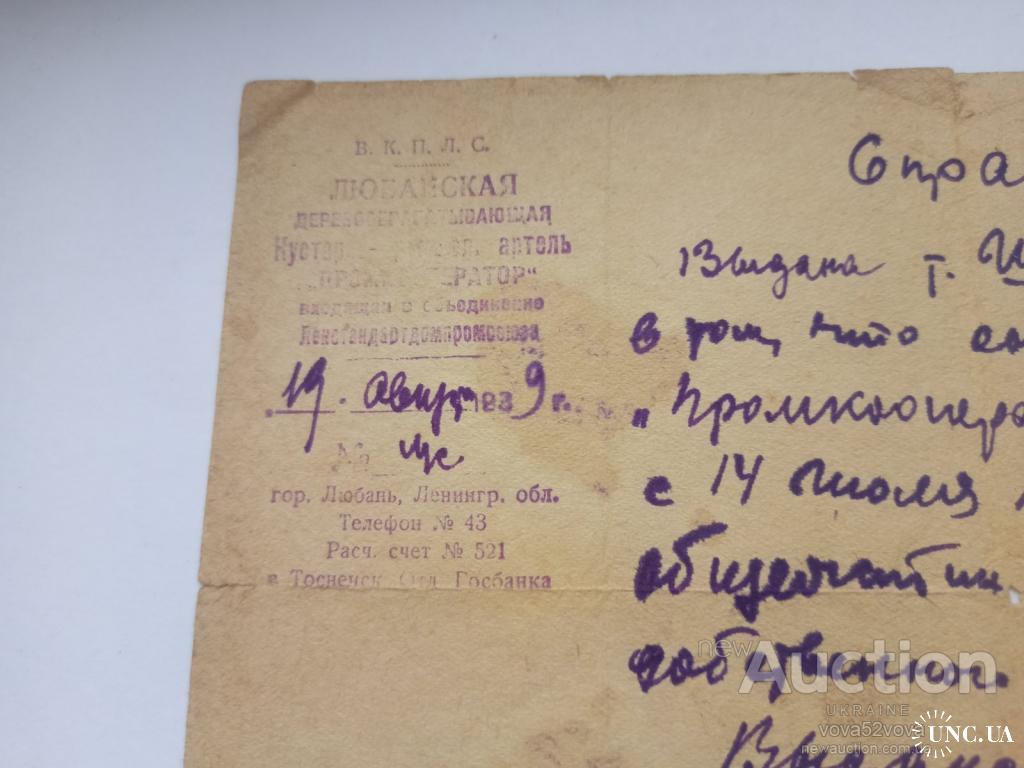 В. К. П. Л. С.
ЛЮБАНСКАЯ
ДЕРЕВООБРАБАТЫВАЮЩАЯ
Кустар. - артель
входящая в объединение
Ленстандартдомпромсоюза
19. Август 1939 г.
№
гор. Любань, Ленингр. обл.
Телефон № 43
Расч. счет № 521
в Тосненск. Отд. Госбанка
Спра
Выдана т.
в том, что он
„Промкоопера
с 14 июля
собственног.
newAuction
UKRAINE
vova52vova
newauction.com.ua
UNC.UA